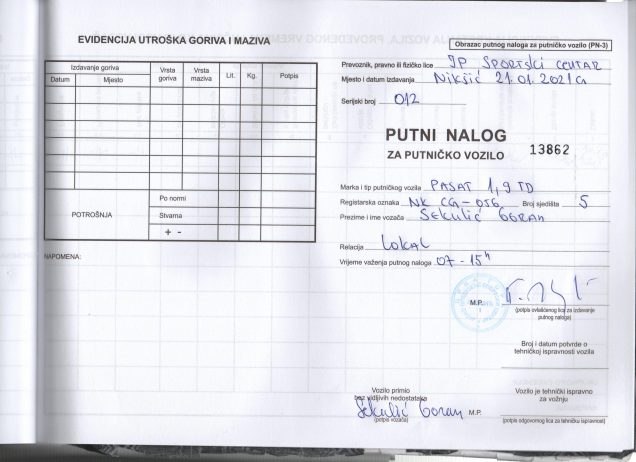 EVIDENCIJA UTROŠKA GORIVA I MAZIVA
Izdavanje goriva
Datum
Mjesto
Vrsta goriva
Vrsta maziva
Lit.
Kg.
Potpis
POTROŠNJA
Po normi
Stvarna
+ -
NAPOMENA:
Vozilo primio
bez vidljivih nedostataka
Sekulić Goran M.P.
(potpis vozača)
Obrazac putnog naloga za putničko vozilo (PN-3)
Prevoznik, pravno ili fizičko lice JP SPORTSKI CENTAR
Mjesto i datum izdavanja Nikšić 21.01.2021 G
Serijski broj 012
PUTNI NALOG
ZA PUTNIČKO VOZILO 13862
Marka i tip putničkog vozila PASAT 1,9 TD
Registarska oznaka NK CG-056 Broj sjedišta 5
Prezime i ime vozača SEKULIĆ GORAN
Relacija LOKAL
Vrijeme važenja putnog naloga 07-15h
M.P.
(potpis ovlašćenog lica za izdavanje
putnog naloga)
Broj i datum potvrde o
tehničkoj ispravnosti vozila
Vozilo je tehnički ispravno
za vožnju
(potpis odgovornog lica za tehničku ispravnost)